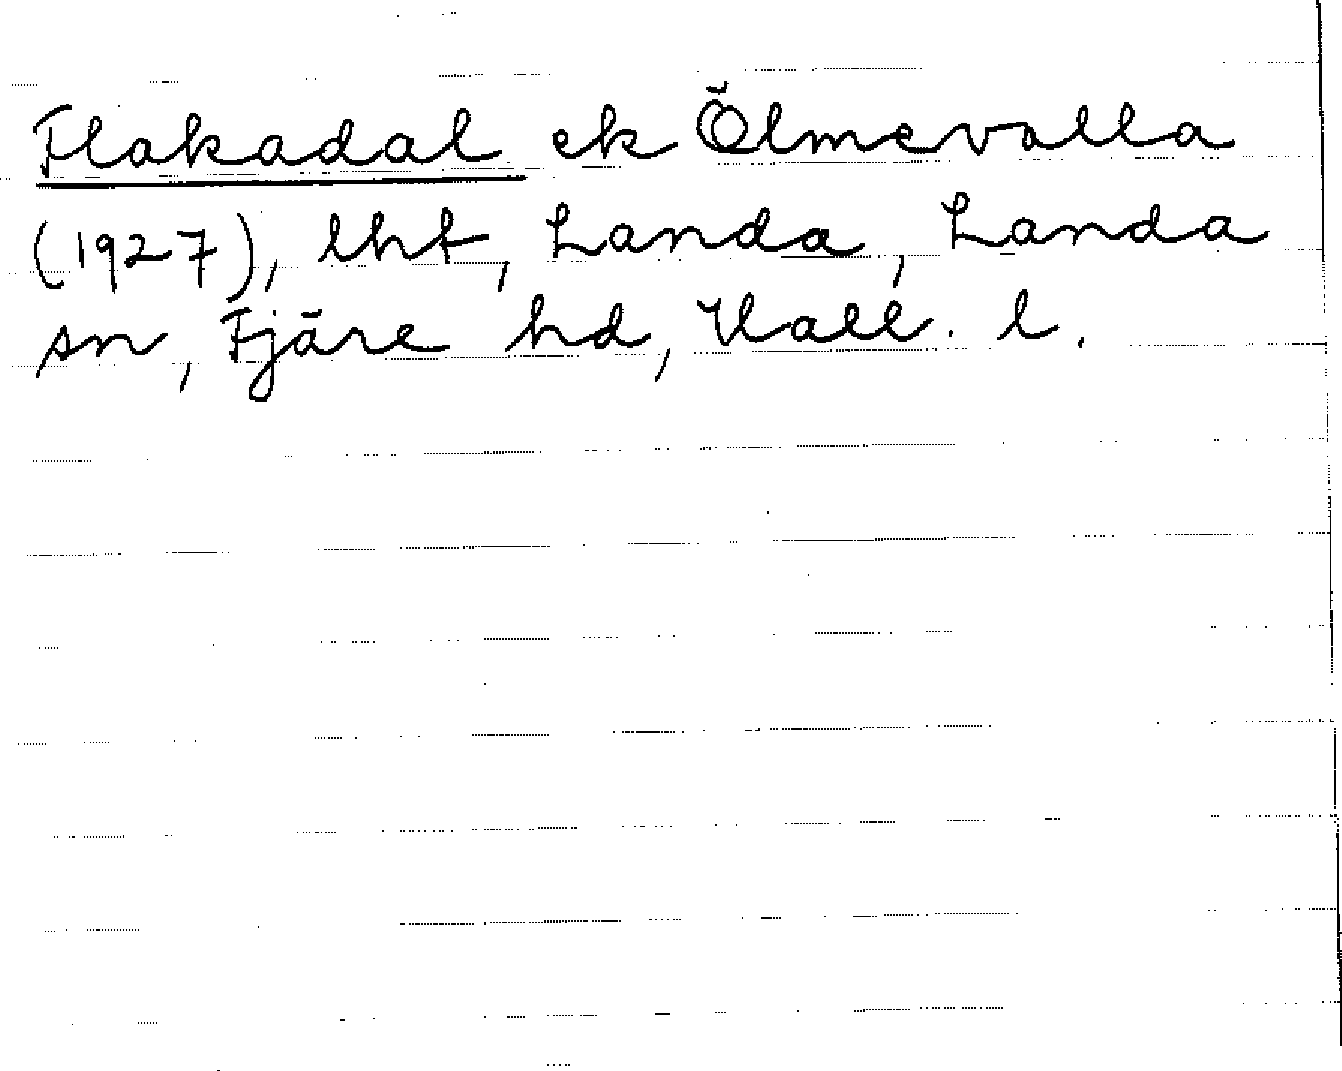 Flakadal ek Ölmevalla
(1927), lht, Landa, Landa
sn, Fjäre hd, Hall. l.